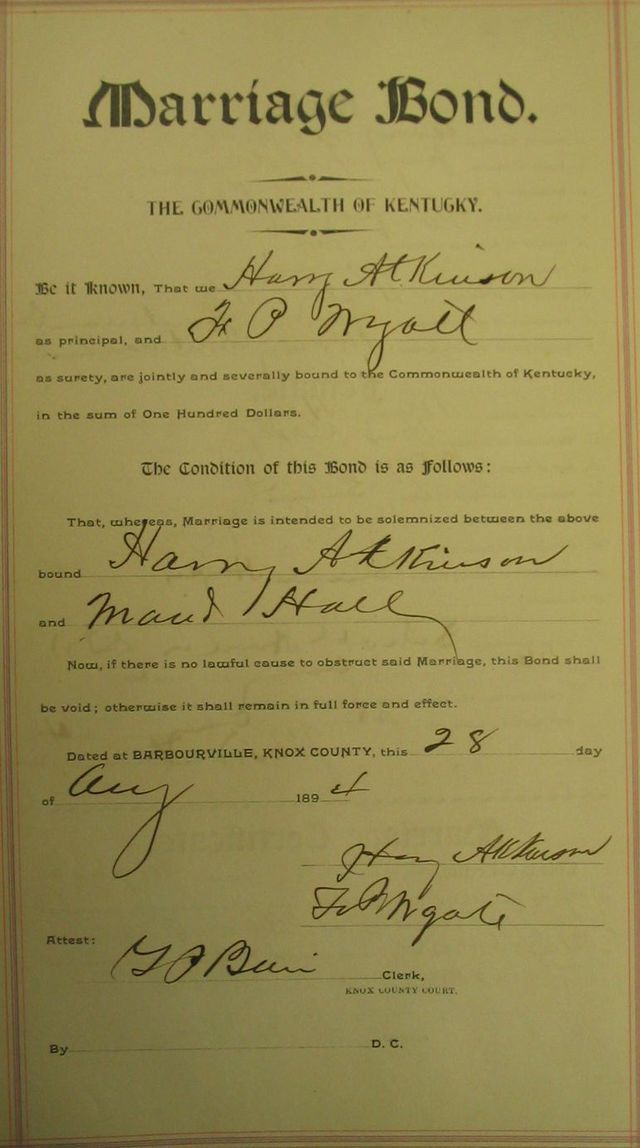 Marriage Bond.
THE COMMONWEALTH OF KENTUCKY.
Be it Known, That we Harry Atkinson
as principal, and F P Wyatt
as surety, are jointly and severally bound to the Commonwealth of Kentucky,
in the sum of One Hundred Dollars.
The Condition of this Bond is as Follows:
That, whereas, Marriage is intended to be solemnized between the above
bound Harry Atkinson
and Maud Hall
Now, if there is no lawful cause to obstruct said Marriage, this Bond shall
be void; otherwise it shall remain in full force and effect.
Dated at BARBOURVILLE, KNOX COUNTY, this 28 day
of Aug 1894
Harry Atkinson
Attest:
Clerk,
KNOX COUNTY COURT.
By D. C.